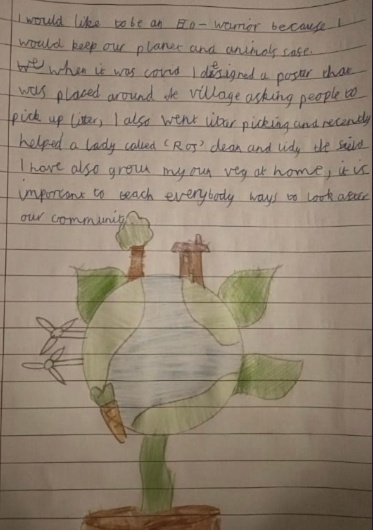 I would like to be an Eco-warrior because I
would keep our planet and animals safe.
when it was covid I designed a poster that
was placed around the village asking people to
pick up liter, I also went liter picking and recently
helped a lady called 'Ros' clean and tidy the field
I have also grow my own veg at home, it is
important to teach everybody ways to look after
our community